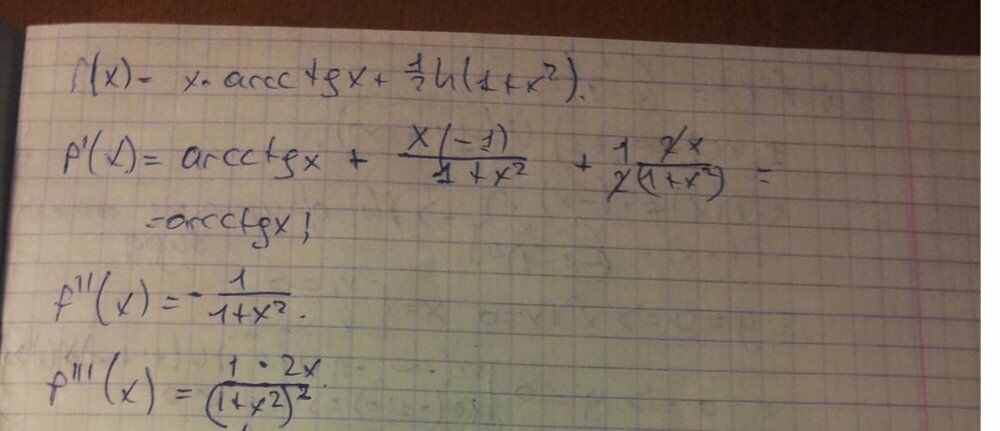 f(x) = x · arcctg x + 1/2 ln(1+x²).
f'(x) = arcctg x + x(-1)/(1+x²) + 1/2 2x/(1+x²) =
= arcctg x;
f''(x) = - 1/(1+x²).
f'''(x) = 1 · 2x/(1+x²)²